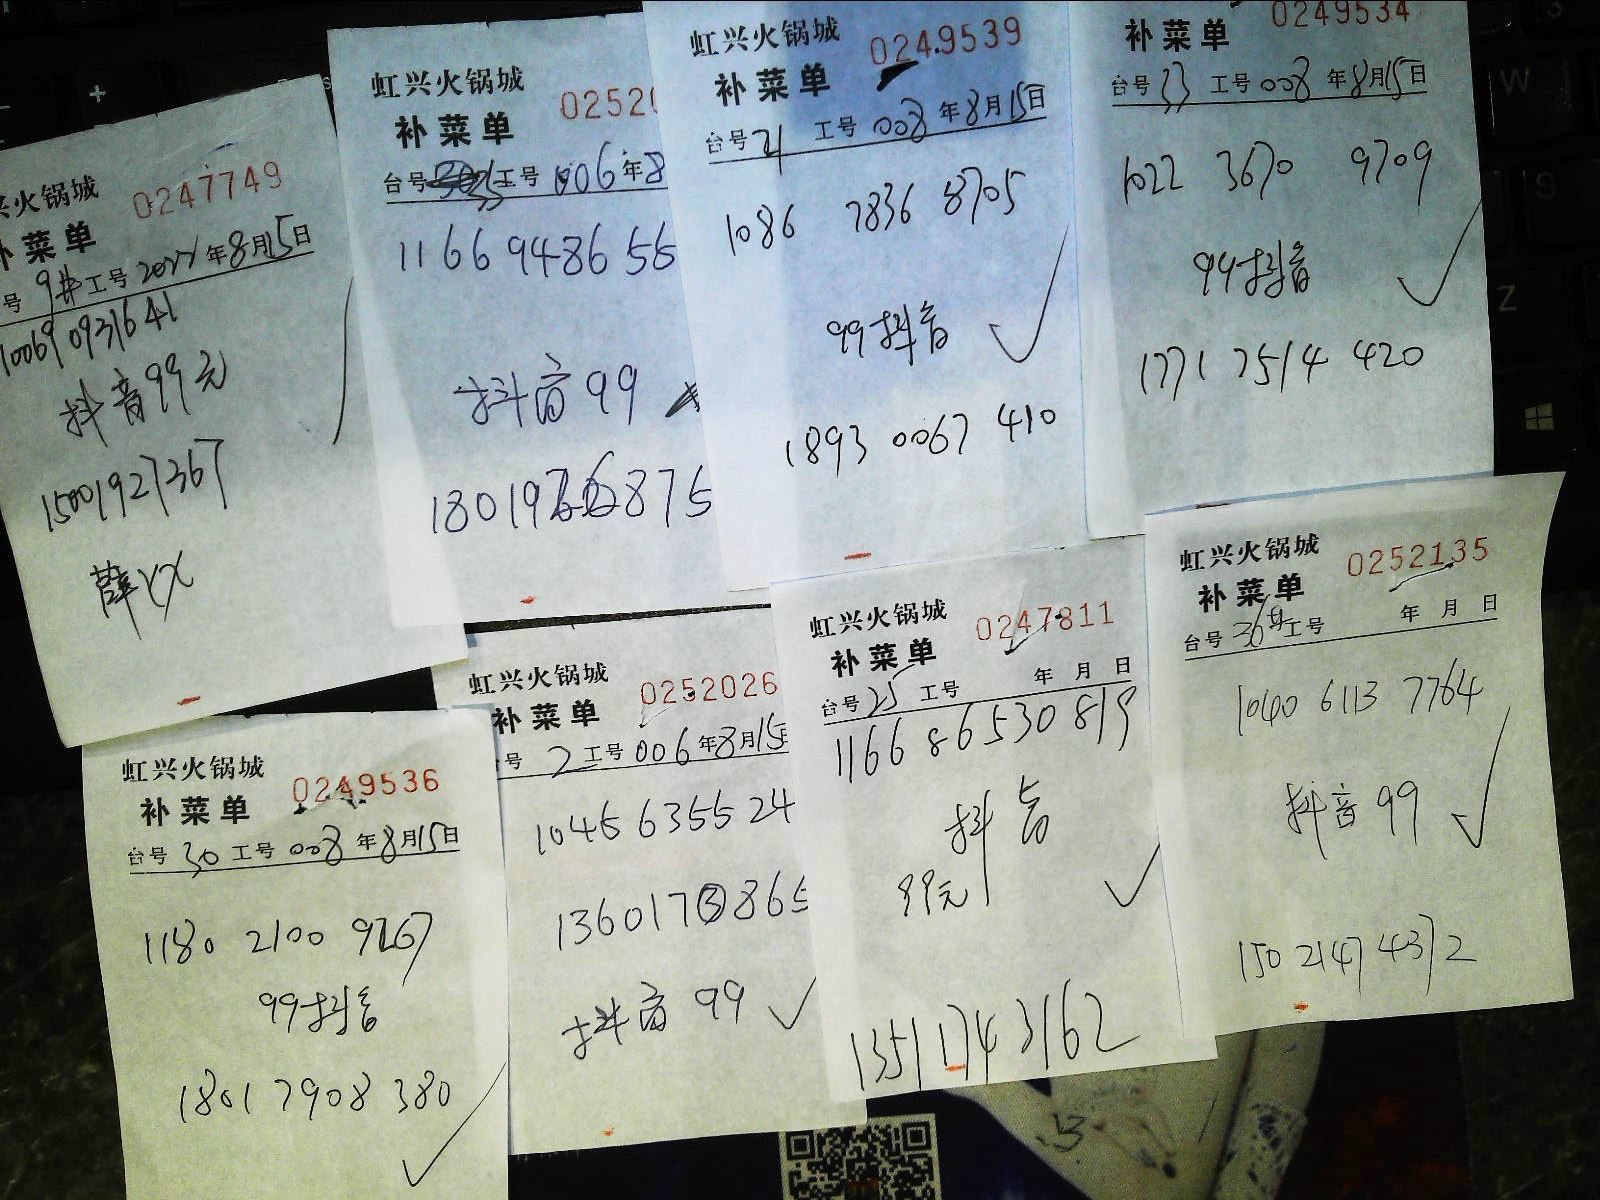 兴火锅城 0247749
补菜单
号 9# 工号 2022 年8月15日
10069 0931641
抖音99元
15001927367
薛
虹兴火锅城 0252
补菜单
台号 工号 006 年8
1166 9486 56
抖音 99
虹兴火锅城 0249539
补菜单
台号 21 工号 008 年8月15日
1086 7836 8705
99抖音
1893 0067 410
0249534
补菜单
台号 33 工号 008 年8月15日
1022 3670 9709
99抖音
1771 7514 420
虹兴火锅城 0249536
补菜单
台号 30 工号 008 年8月15日
1180 2100 9267
99抖音
1801 7908 380
虹兴火锅城 0252026
补菜单
号 2 工号 006 年8月15
1045 6355 24
1360173865
抖音 99
虹兴火锅城 0247811
补菜单
台号 25 工号 年 月 日
1166 86530 819
抖音
99元
1351 1743162
虹兴火锅城 0252135
补菜单
台号 36# 工号 年 月 日
1040 6113 7764
抖音 99
150 2147 4372